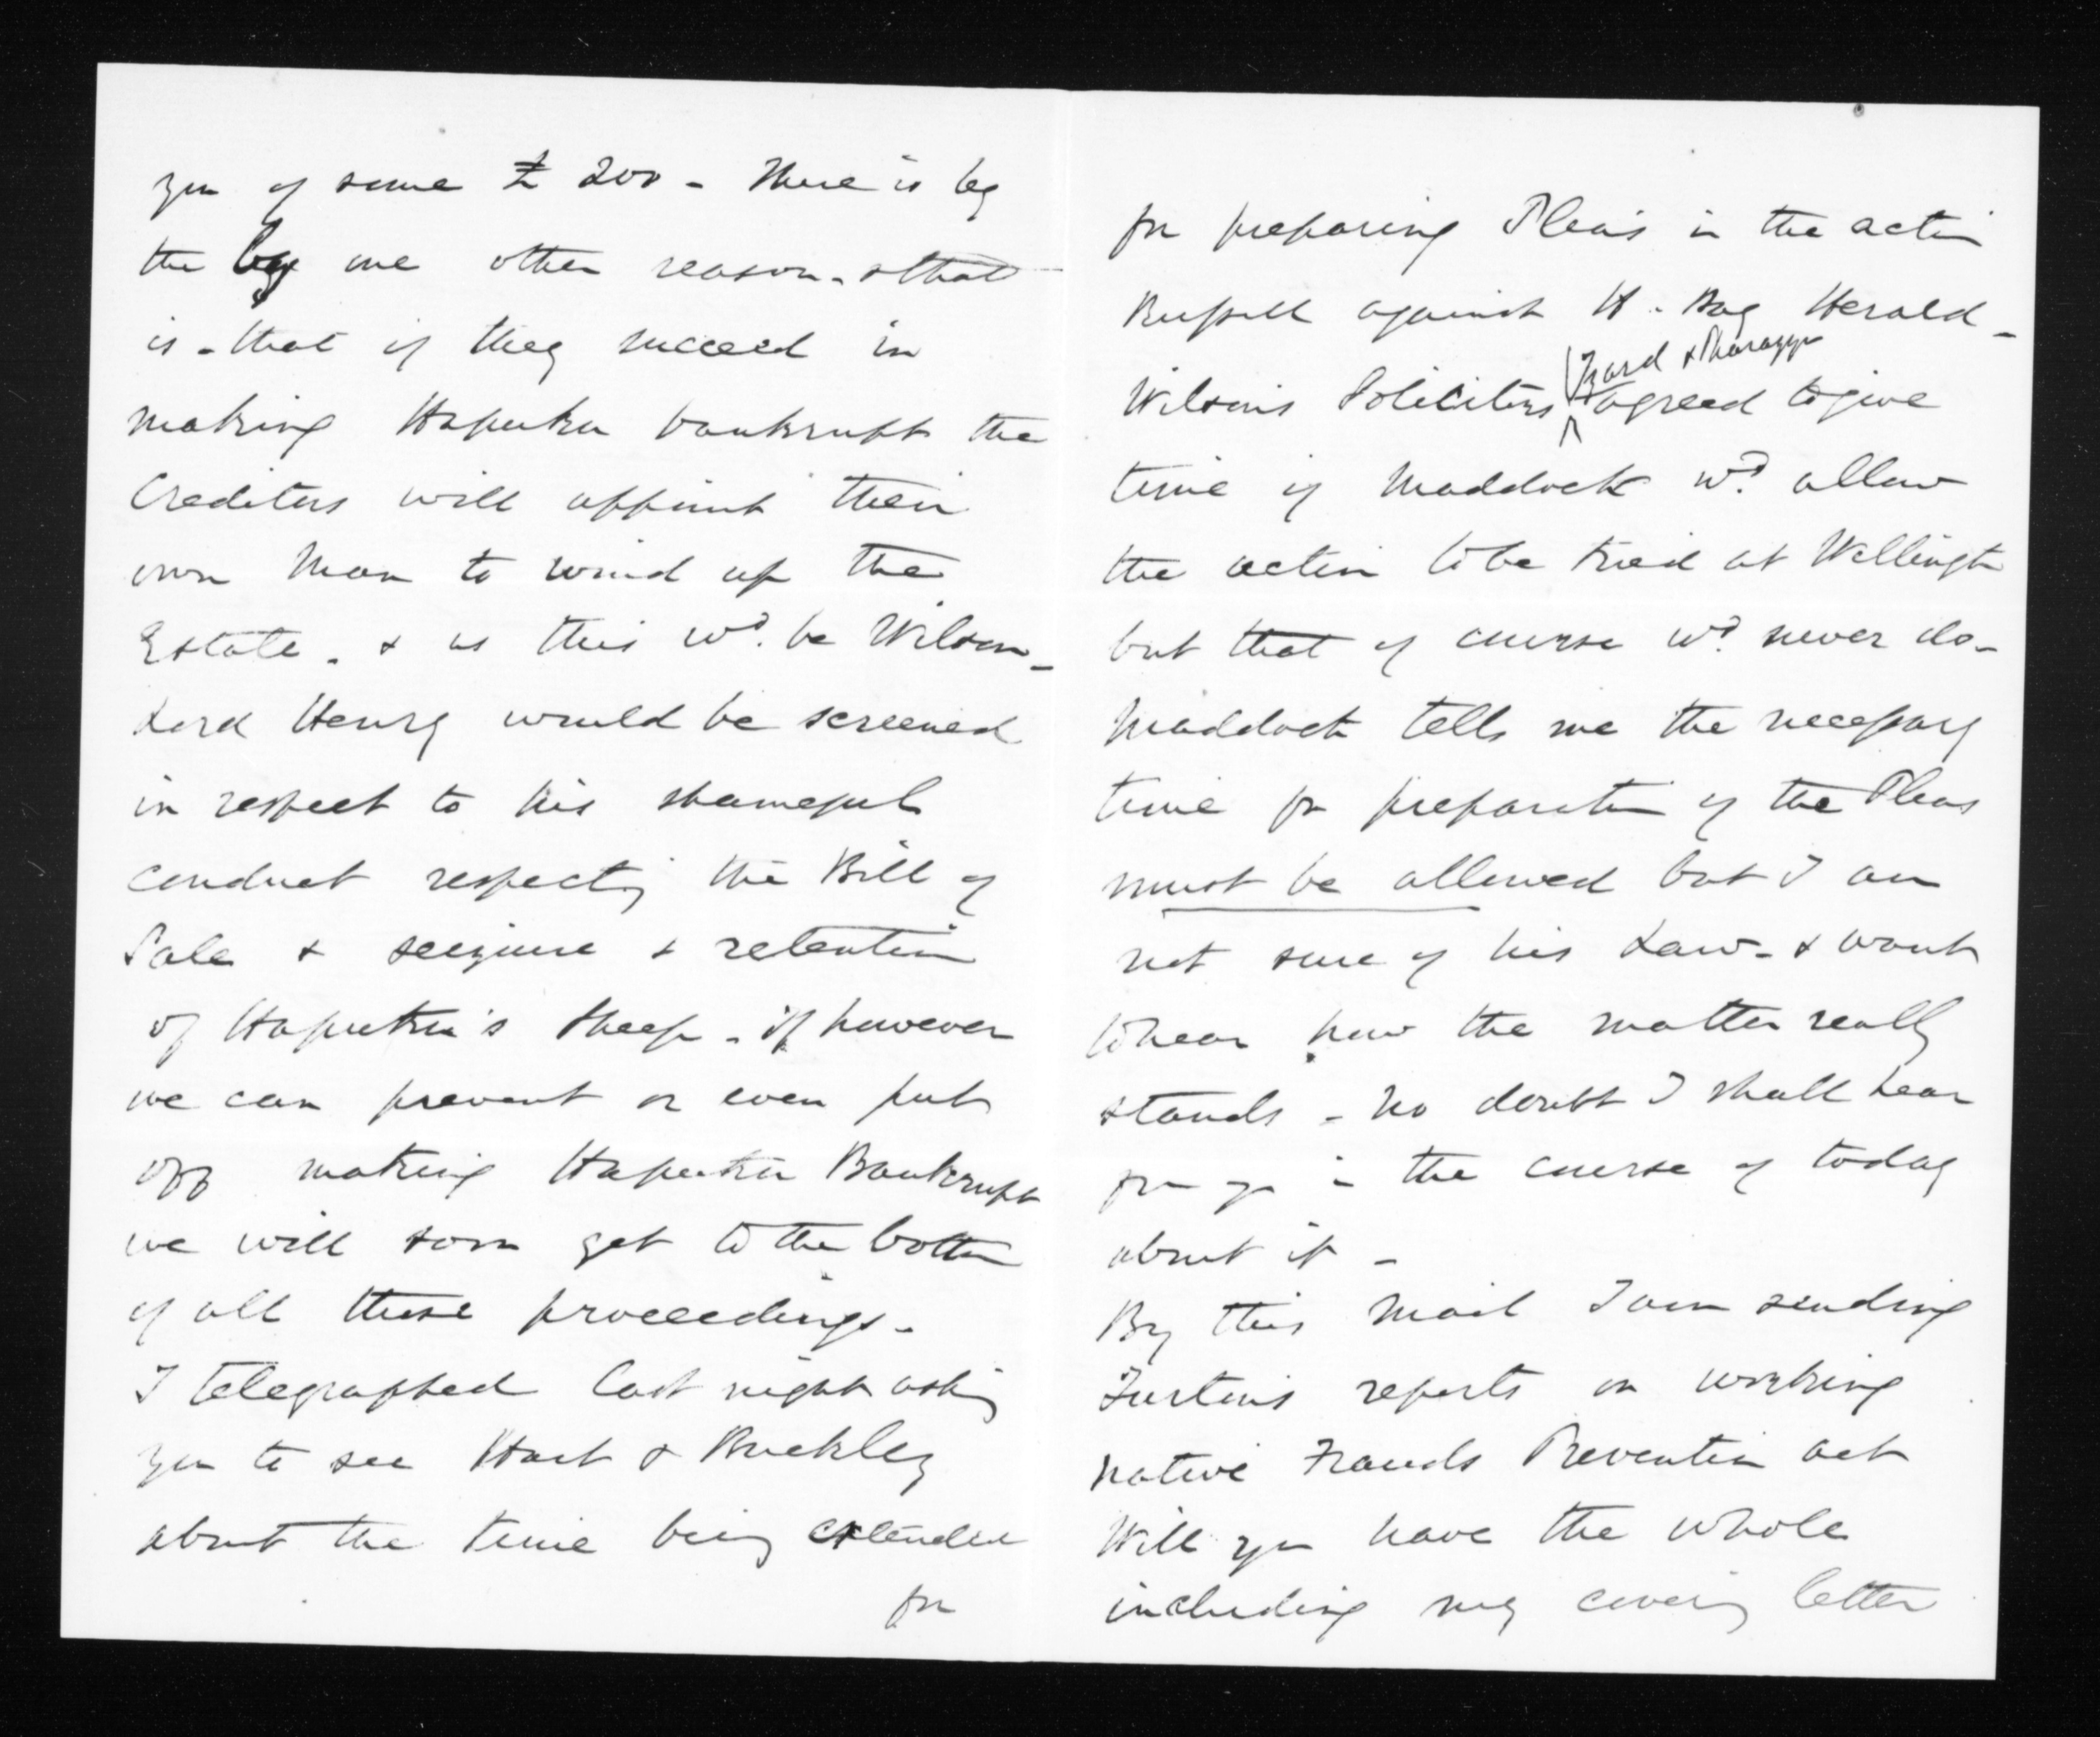 you of some £200 - There is by
the bye one other reason - & that
is - that if they succeed in
making Hapuku bankrupt the
Creditors will appoint their
own Man to wind up the
Estate - & as this wd. be Wilson -
Lord Henry would be screened
in respect to his shameful
conduct respecting the Bill of
Sale & seizure & retention
of Hapuku's Sheep - if however
we can prevent or even put
off making Hapuku Bankrupt
we will soon get to the bottom
of all these proceedings -
I telegraphed last night asking
you to see Hart & Buckley
about the time being extended
for
for preparing Pleas in the action
Russell against H. Bay Herald -
Izard &
Wilson's Solicitors agreed to give
time if Maddock wd. allow
the action to be tried at Wellington
but that of course wd. never do -
Maddock tells me the necessary
time for preparation of the Pleas
must be allowed but I am
not sure of his Law - & want
to hear how the matter really
stands - No doubt I shall hear
from you in the course of today
about it -
By this Mail I am sending
Turton's reports on working
Native Frauds Prevention Act
Will you have the whole
including my covering letter